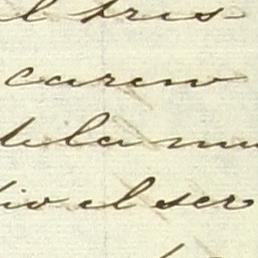 l tres
carew
de la mu
dio el ser